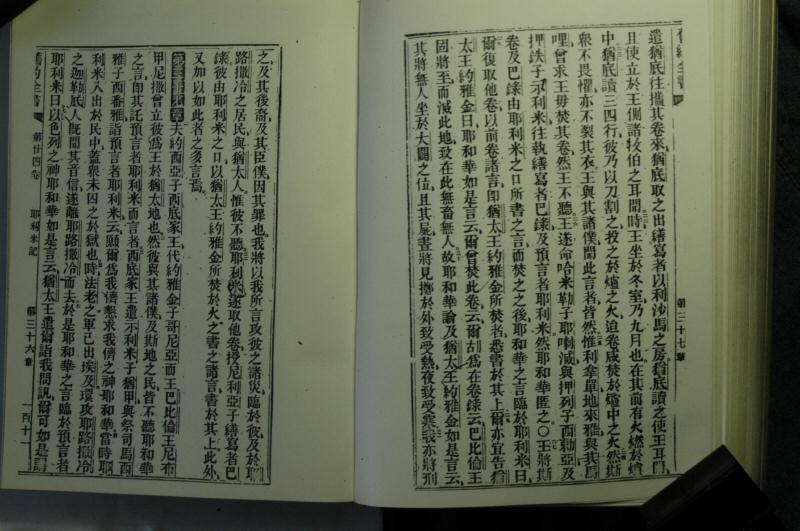 舊約全書
第三十七章
遣猶底往攜其卷來猶底取之出繕寫者以利沙馬之房猶底讀之使王耳聞
且使立於王側諸牧伯之耳聞時王坐於冬室乃九月也在其前有火燃於爐
中猶底讀三四行彼乃以刀割之投之於爐之火迨卷咸焚於爐中之火然斯
眾不畏懼亦不裂其衣王與其諸僕聞此言者皆然惟利拿單地來雅與其馬
哩曾求王毋焚其卷然王不聽王遂命哈米勒子耶喇減與押列子西勒亞及
押鉄子示利米往執繕寫者巴錄及預言者耶利米然耶和華匿之〇王將斯
卷及巴錄由耶利米之口所書之言而焚之之後耶和華之言臨於耶利米曰
爾復取他卷以前卷諸言即猶太王約雅金所焚者悉書於其上爾亦宜告猶
太王約雅金曰耶和華如是言云爾曾焚此卷云爾胡為在卷錄云巴比倫王
固將至而滅此地致在此無畜無人故耶和華論及猶太王約雅金如是言云
其將無人坐於大闢之位且其屍晝將見擲於外致受熱夜致受寒我亦將刑
之及其後裔及其臣僕因其罪也我將以我所言攻彼之諸災臨於彼及於耶
路撒冷之居民與猶太人惟彼不聽耶利米遂取他卷授尼利亞子繕寫者巴
錄彼由耶利米之口以猶太王約雅金所焚於火之書之諸言書於其上此外
又加以如此者之多言焉
夫約西亞子西底家王代約雅金子哥尼亞而王巴比倫王尼布
甲尼撒曾立彼為王於猶太地也然彼與其諸僕及斯地之民皆不聽耶和華
之言即其託預言者耶利米而言者西底家王遣示利米子猶甲與祭司馬西
雅子西番雅詣預言者耶利米云願爾為我儕懇求我儕之神耶和華當時耶
利米入出於民中蓋眾未囚之於獄也時法老之軍已出埃及環攻耶路撒冷
之迦勒底人既聞其音信遂離耶路撒冷而去於是耶和華之言臨於預言者
耶利米曰以色列之神耶和華如是言云猶太王遣爾詣我問訊爾可如是謂
舊約全書
第廿四卷
耶利米記
第三十六章
一百十